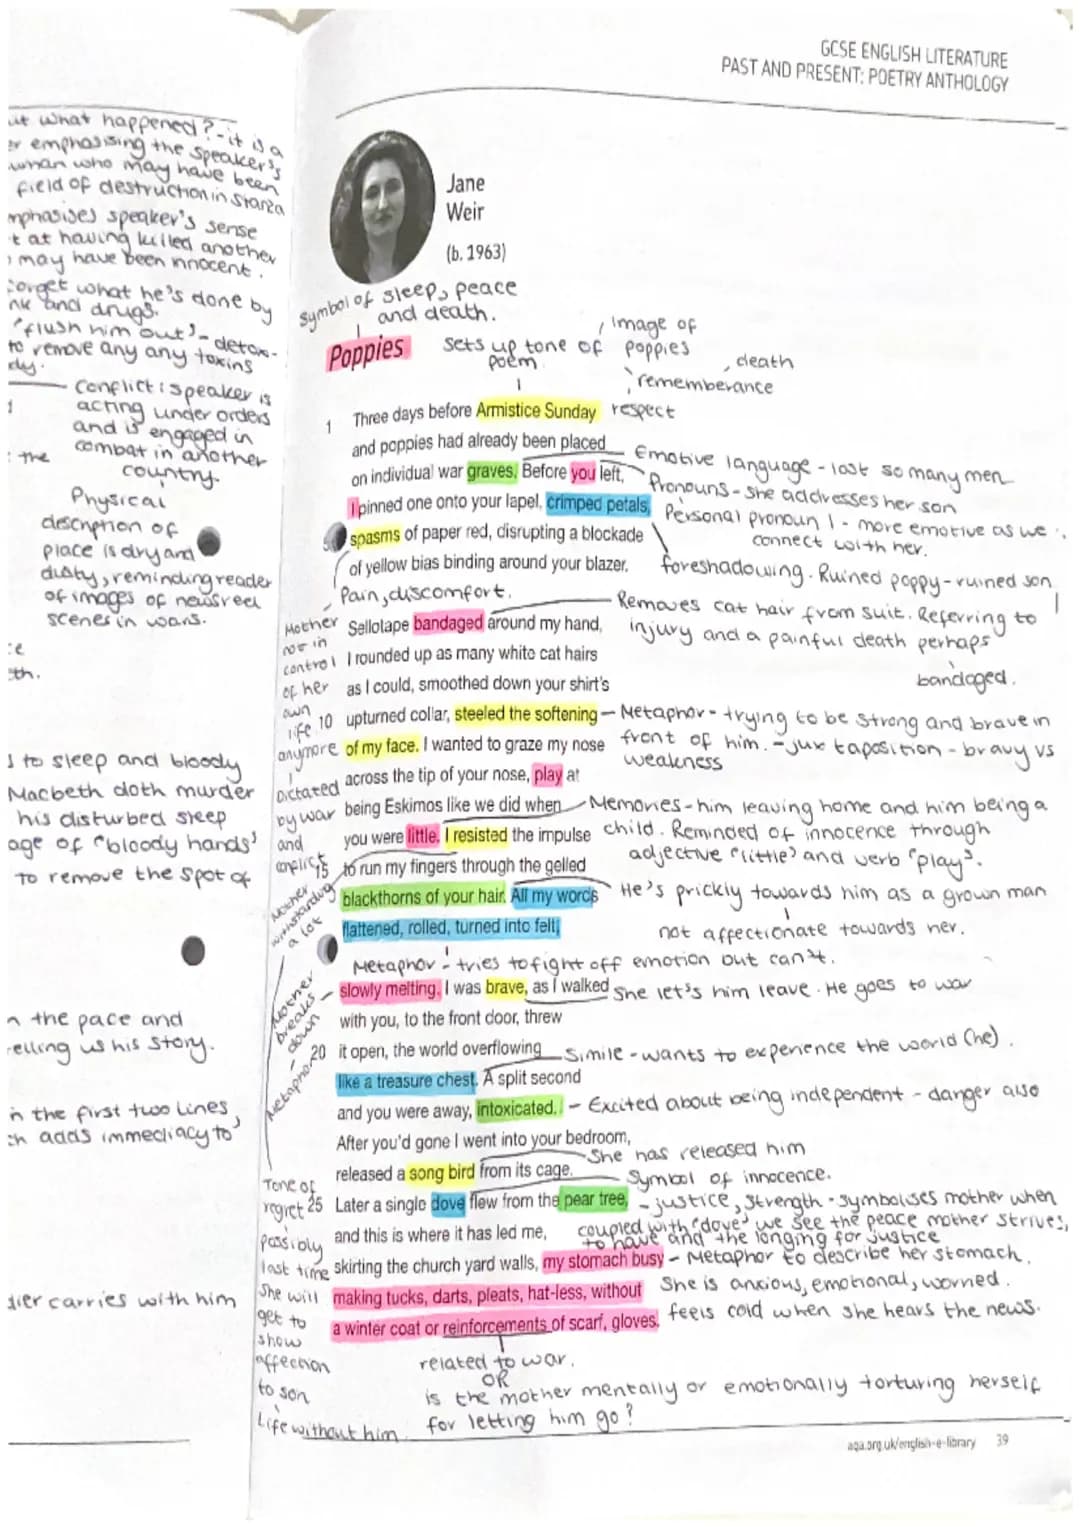 GCSE ENGLISH LITERATURE
PAST AND PRESENT: POETRY ANTHOLOGY
ut what happened? - it is a
er emphasising the speaker's
who may have been
field of destruction in stanza
mphasises speaker's sense
t at having killed another
may have been innocent.
forget what he's done by
nk and drugs.
"flush him out" - detox-
to remove any any toxins
dy.
Conflict: speaker is
acting under orders
and is engaged in
combat in another
country.
: the
Physical
description of
place is dry and
dusty, reminding reader
of images of newsreel
scenes in wars.
ce
eth.
s to sleep and bloody
Macbeth doth murder
his disturbed sleep
age of "bloody hands"
to remove the spot of
n the pace and
elling us his story.
in the first two lines,
ch adds immediacy to
dier carries with him
Jane
Weir
(b. 1963)
Symbol of sleep, peace
and death.
Poppies
Sets up tone of
poem
image of
poppies
death
rememberance
respect
1 Three days before Armistice Sunday
and poppies had already been placed
on individual war graves. Before you left,
I pinned one onto your lapel, crimped petals,
5 spasms of paper red, disrupting a blockade
of yellow bias binding around your blazer.
Emotive language - lost so many men
Pronouns - she addresses her son
Personal pronoun I - more emotive as we
connect with her.
foreshadowing. Ruined poppy - ruined son
Pain, discomfort.
Sellotape bandaged around my hand,
I rounded up as many white cat hairs
as I could, smoothed down your shirt's
10 upturned collar, steeled the softening
of my face. I wanted to graze my nose
across the tip of your nose, play at
being Eskimos like we did when
you were little. I resisted the impulse
15 to run my fingers through the gelled
blackthorns of your hair. All my words
flattened, rolled, turned into felt,
Removes cat hair from suit. Referring to
injury and a painful death perhaps
bandaged.
Metaphor - trying to be strong and brave in
front of him. - juxtaposition - bravy vs
weakness
Memories - him leaving home and him being a
child. Reminded of innocence through
adjective "little" and verb "play".
He's prickly towards him as a grown man
not affectionate towards her.
Mother
not in
control
of her
own
life
anymore
Dictated
by war
and
conflict
Mother
withstanding
a lot
Metaphor - tries to fight off emotion but can't.
slowly melting. I was brave, as I walked
with you, to the front door, threw
20 it open, the world overflowing
like a treasure chest. A split second
and you were away, intoxicated.
After you'd gone I went into your bedroom,
released a song bird from its cage.
25 Later a single dove flew from the pear tree,
and this is where it has led me,
skirting the church yard walls, my stomach busy
making tucks, darts, pleats, hat-less, without
a winter coat or reinforcements of scarf, gloves.
Mother
breaks
down
- Metaphor
She let's him leave. He goes to war
Simile - wants to experience the world (he).
- Excited about being independent - danger also
She has released him
Symbol of innocence.
- justice, strength - symbolises mother when
coupled with "dove" we see the peace mother strives,
to have and the longing for justice
- Metaphor to describe her stomach.
She is anxious, emotional, worried.
feels cold when she hears the news.
Tone of
regret
Possibly
last time
She will
get to
show
affection
to son
Life without him.
related to war.
OR
is the mother mentally or emotionally torturing herself
for letting him go?
aqa.org.uk/english-e-library 39